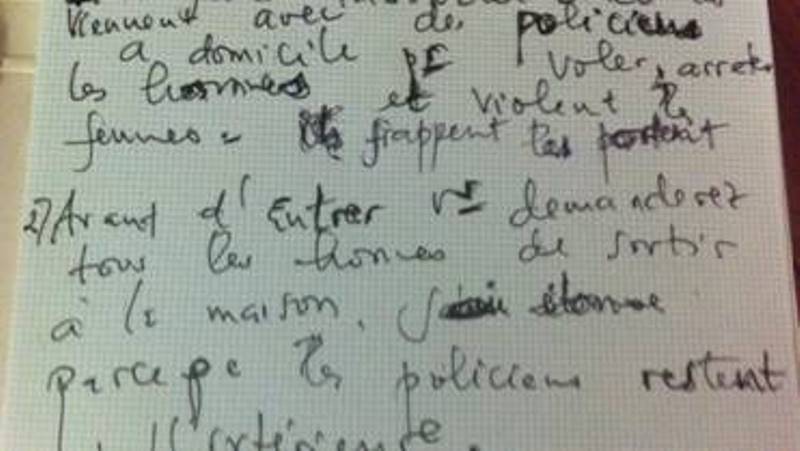 viennent avec des policiens
a domicile pr voler, arreter
les hommes et violent les
femmes. frappent les portent
2) Avant d'Entrer vs demanderez
tous les homes de sortir
à la maison.
parceque les policiens restent
l'extérieure.